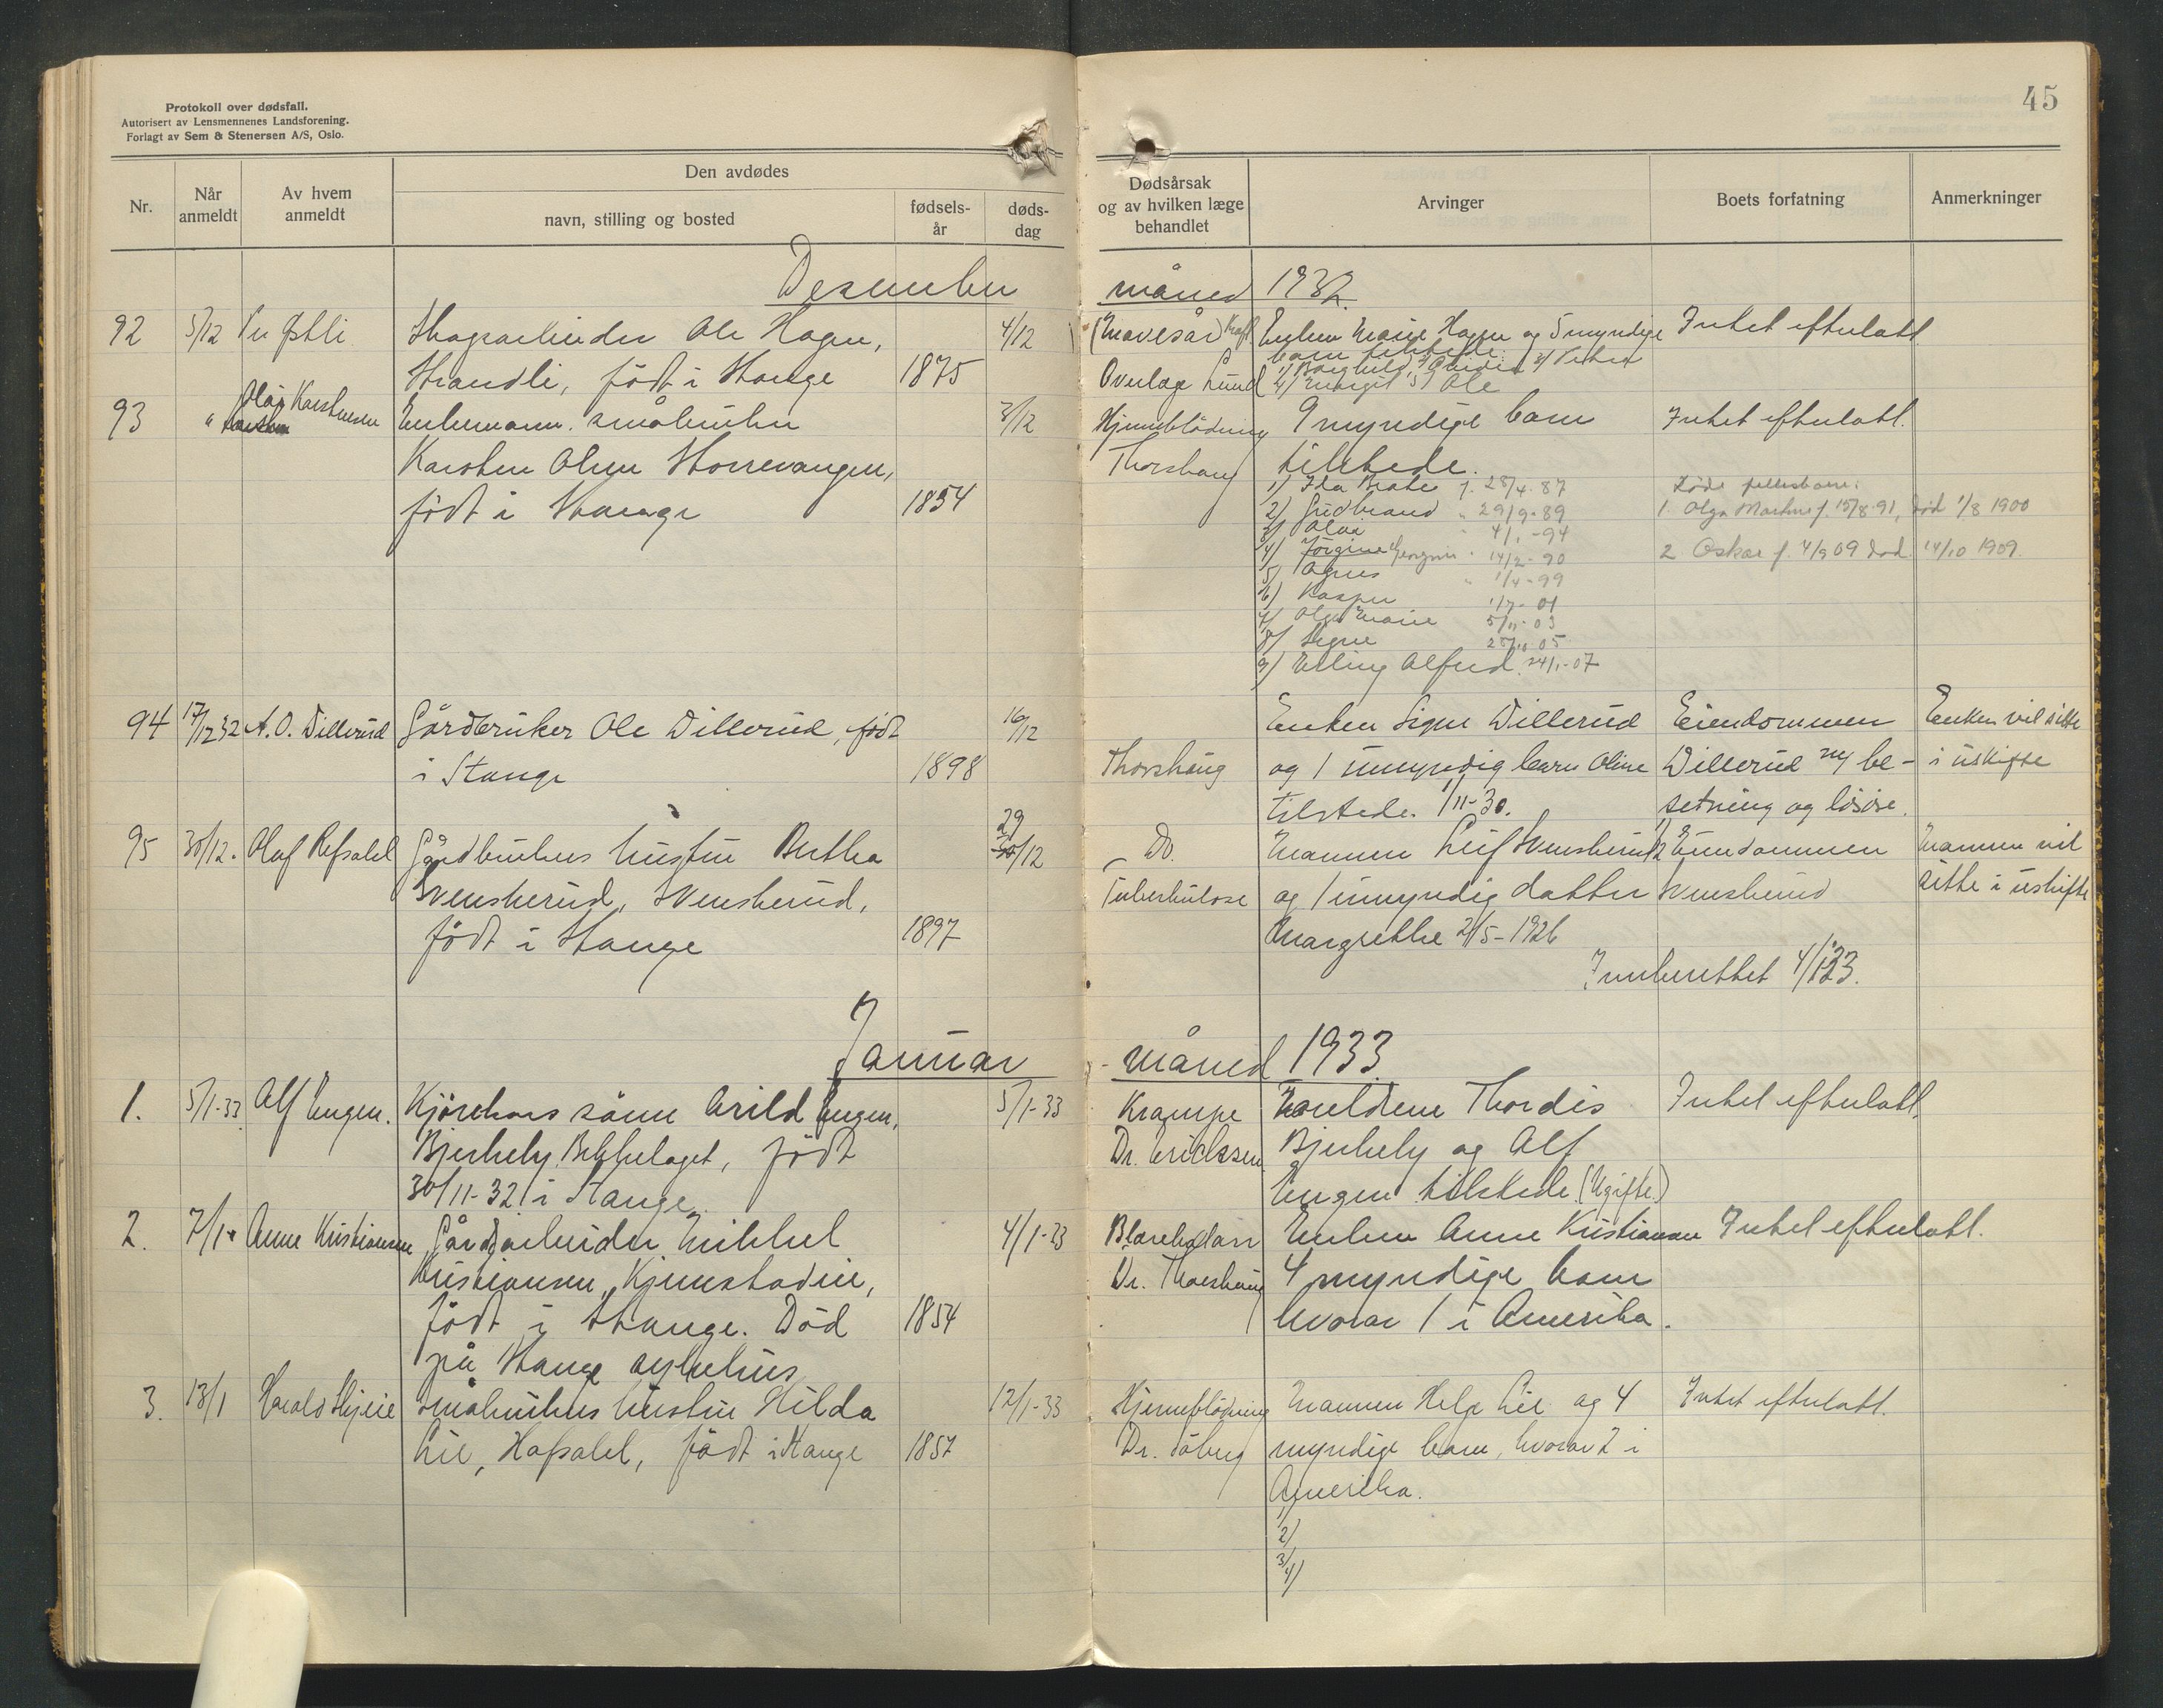 Protokoll over dødsfall.
Autorisert av Lensmennenes Landsforening.
Forlagt av Sem & Stenersen A/S, Oslo.
45
Nr.
Når anmeldt
Av hvem anmeldt
Den avdødes
navn, stilling og bosted
fødsels-år
døds-dag
Dødsårsak og av hvilken læge behandlet
Arvinger
Boets forfatning
Anmerkninger
Desember måned 1932.
92 5/12 Per Østli Skogsarbeider Ole Hagen, 4/12 (Mavesår) Kreft Enken Marie Hagen og 5 myndige Intet efterlatt
Strandli, født i Stange 1875 Overlæge Lund barn tilstede:
1) Borghild, 3) Petra
4) Margit 5) Ole
93 " Olaf Karstensen Enkemann småbruker 3/12 Hjerneblødning 9 myndige barn Intet efterlatt.
Karsten Olsen Storrevangen, Thorshaug tilstede.
født i Stange 1854
1) Ida Beate f. 28/4-87 Døde fellesbarn:
2) Gudbrand " 29/9-89 1. Olga Marthe f. 15/8-91, død 1/8 1900
3) Olai " 4/1-94
4) Jørgine Georgine " 14/2-90 2 Oskar f. 4/9 09 død 14/10 1909.
5) Agnes " 1/4-99
6) Kasper 1/7-01
7) Olga Marie 5/11-03
8) Signe 25/10 05
9) Erling Alfred 24/1-07
94 17/12 32 A. O. Dillerud Gårdbruker Ole Dillerud, født 16/12 Enken Signe Dillerud Eiendommen Enken vil sitte
i Stange 1898 Thorshaug og 1 umyndig barn Oline Dillerud m/ be- i uskifte
tilstede. 1/11-30. setning og løsøre.
95 30/12. Olaf Refsahl Gårdbrukers hustru Bertha 29 30/12 Do. Mannen Leif Svenskerud 1/2 Eiendommen Mannen vil
Svenskerud, Svenskerud, Tuberkulose og 1 umyndig datter Svenskerud sitte i uskifte
født i Stange 1897 Margrethe 2/5-1926
Innberettet 4/1 33.
Januar måned 1933.
1. 5/1-33. Alf Engen. Kjørekars sønn Arild Engen, 5/1-33 Krampe Foreldrene Thordis Intet efterlatt.
Bjerkely Bekkelaget, født Dr. Ericksen Bjerkely og Alf
30/11-32 i Stange. Engen tilstede (Ugifte.)
2. 7/1 Anne Kristiansen Gårdsarbeider Mikkel 4/1-33 Enken Anne Kristiansen Intet efterlatt.
Kristiansen, Kjemstadeie, Dr. Thorshaug 4 myndige barn
født i Stange. Død 1854 hvorav 1 i Amerika.
på Stange sykehus
3. 13/1 Harald Skjeie Småbrukers hustru Hilda 12/1-33 Hjerneblødning Mannen Helge Lie og 4 Intet efterlatt.
Lie, Hafsahl, født i Stange 1857 Dr. Søberg myndige barn, hvorav 2 i
Amerika.
1)
2)
3)
4)